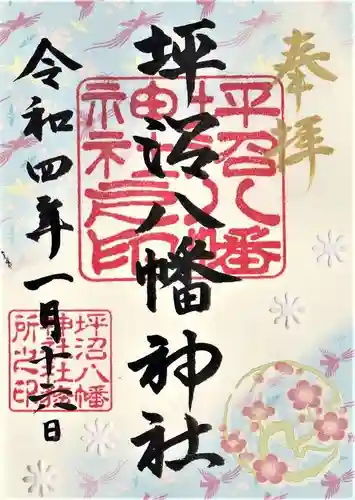 奉拝
坪沼八幡神社
令和四年一月十六日
坪沼八幡
神社之印
坪沼八幡
神社社務
所之印